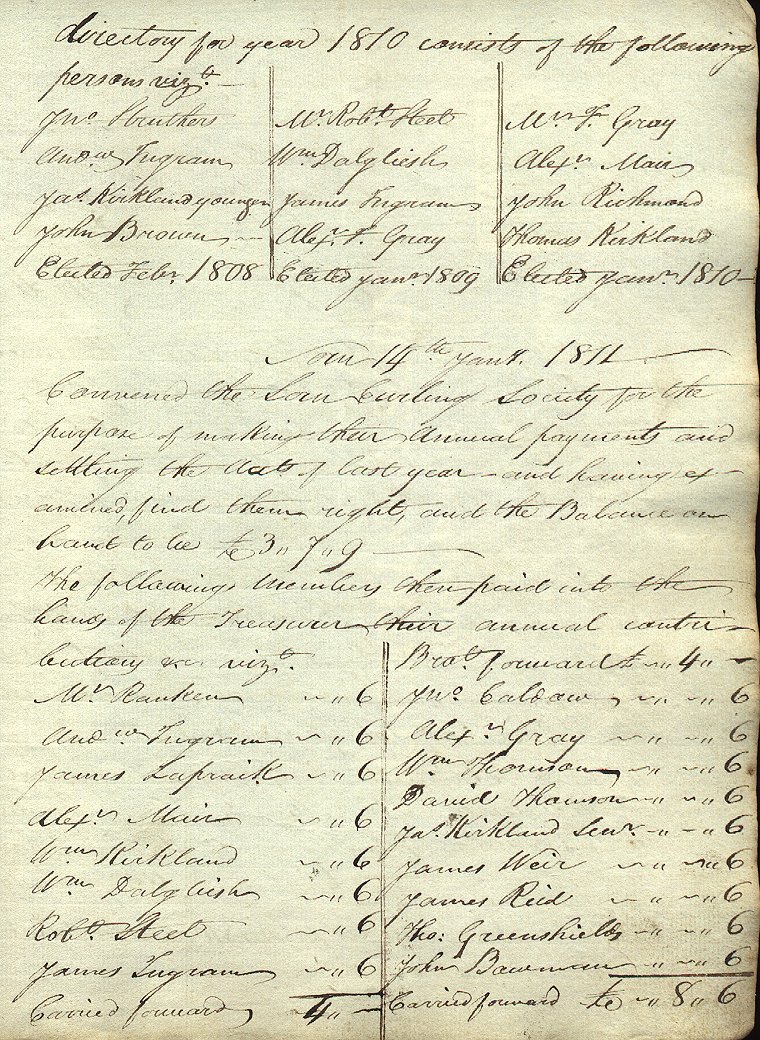 directory for year 1810 consists of the following
persons vizt. —
Jno. Struthers
Andw. Ingram
Jas. Kirkland younger
John Brown —
Elected Febr. 1808
Mr. Robt. Steel
Wm Dalgliesh
James Ingram
Alexr. F. Gray
Elected Janr. 1809
Mr. F. Gray
Alexr. Mair
John Richmond
Thomas Kirkland
Elected Janr. 1810 —
14th Janr. 1811
Convened the Loan Curling Society for the
purpose of making their Annual payments and
settling the Accts of last year — and having ex-
amined, find them right, and the Balance on
hand to be £3 " 7 " 9 —
The following Members then paid into the
hands of the Treasurer their annual contri-
butions vizt.
Mr. Ranken ~ " 6
Andw. Ingram ~ " 6
James Lapraik ~ " 6
Alexr. Mair ~ " 6
Wm Kirkland ~ " 6
Wm Dalgliesh ~ " 6
Robt. Steel ~ " 6
James Ingram ~ " 6
Carried forward 4 " —
Brot. forward £ ~ " 4 " —
Jno. ~ " ~ " 6
Alexr. Gray ~ " ~ " 6
Wm Thomson ~ " ~ " 6
David Thomson ~ " ~ " 6
Jas. Kirkland Senr. ~ " ~ " 6
James Weir ~ " ~ " 6
James Reid ~ " ~ " 6
Tho: Greenshields ~ " ~ " 6
John Bowman ~ " ~ " 6
Carried forward £ ~ " 8 " 6